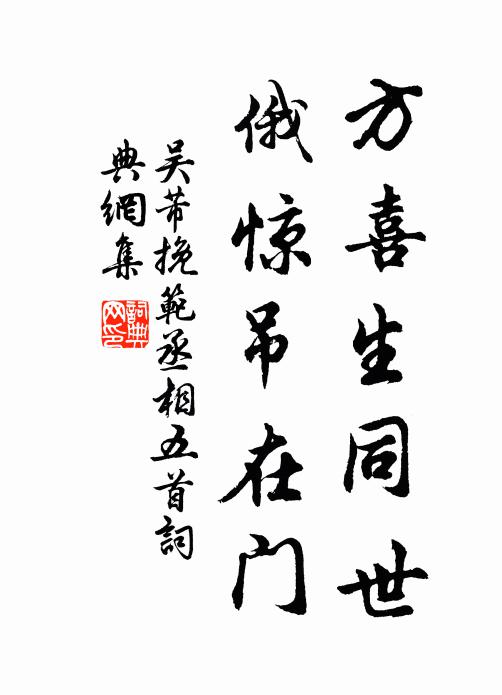 方喜生同世
俄惊吊在门
吴芾挽範丞相五首詞
典網集
詞典网印